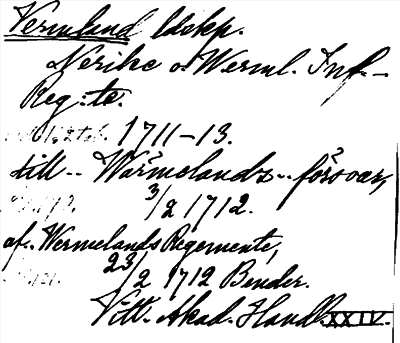 Vermland ldskp.
Nerike o. Werml. Inf.-
Reg:te.
1711-13.
till - Wärmelands - försvar,
3/2 1712.
af. Wermelands Regemente,
23/2 1712 Bender.
Vitt. Akad. Handl. XXIV.